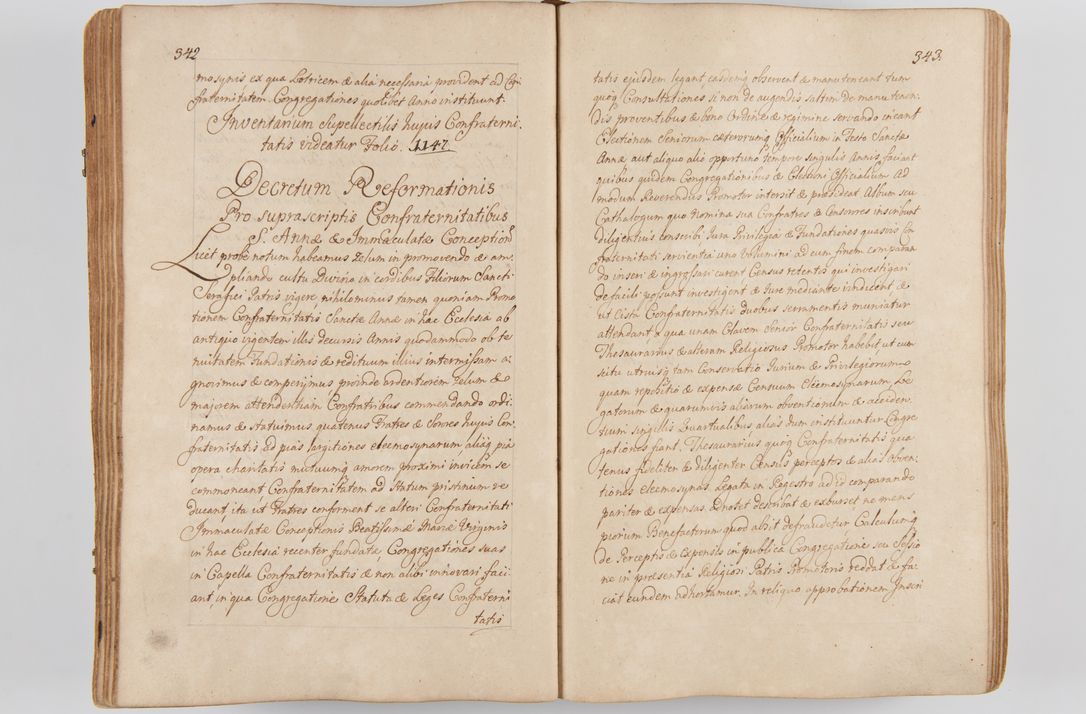 342
mosynis ex qua Lotricem & alia necessaria provident ad Con
fraternitatem Congregationes quolibet Anno instituunt.
Inventarium Supellectilis hujus Confraterni:
tatis videatur Folio. 1147.
Decretum Reformationis
Pro suprascriptis Confraternitatibus
S. Annæ & Immaculatæ Conception
Licet probe notum habeamus Zelum in promovendo & am:
pliando cultu Divino in cordibus Filiorum Sancti
Serafici Patris vigere nihilominus tamen quoniam Promo
tionem Confraternitatis Sanctæ Annæ in hac Ecclesia ab
antiquo vigentem illis decursis Annis quodammodo ob te
nuitatem Fundationis & redituum illius intermissam a:
gnovimus & comperijmus proinde ardentiorem Zelum &
majorem attendentiam Confratribus commendando ordi:
namus & statuimus quatenus Fratres & Sorores hujus Con
fraternitatis ad pias largitiones eleemosynarum aliaq pia
opera charitatis mutuumq amorem proximi invicem se
commoneant Confraternitatem ad Statum pristinum re
ducant ita ut Fratres conforment se alteri Confraternitati
Immaculatæ Conceptionis Beatissimæ Mariæ Virginis
in hac Ecclesia recenter fundatæ Congregationes suas
in Capella Confraternitatis & non alibi innovari faci:
ant in qua Congregatione Statuta & Leges Confraterni
tatis
343.
tatis ejusdem legant easdemq observent & manuteneant tum
quoq Consultationes si non de augendis saltim de manutenen:
dis proventibus & bono Ordine & regimine servando ineant
Electionem Seniorum cæterorumq Officialium in Festo Sanctæ
Annæ aut aliquo alio opportuno tempore singulis Annis faciant
quibus quidem Congregationibus & Electioni Officialium Ad
modum Reverendus Promotor intersit & præsideat Album seu
Cathalogum quo Nomina sua Confratres & Consorores inscribunt
diligentius conscribi Jura Privilegia & Fundationes quasvis Con
fraternitati servientia uno Volumini ad eum finem comparan
do inseri & ingrossari curent Census retentos qui investigari
de facili possunt investigent & Jure mediante vindicent &
ut Cista Confraternitatis duobus serramentis muniatur
attendant ex qua unam Clavem Senior Confraternitatis seu
Thesaurarius & alteram Religiosus Promotor habebit ut cum
scitu utriusq tam Conservatio Jurium & Privilegiorum
quam repositio & expensæ Censuum Eleemosynarum Le
gatorum & quarumvis aliarum obventionum & acciden:
tium singulis Quartualibus alias dum instituuntur Congre
gationes fiant. Thesaurarius quoq Confraternitatis qua
tenus fideliter & diligenter Census perceptos & alias obven:
tiones eleemosynas Legata in Regestro ad id comparando
pariter & expensas adnotet describat & exburset ne mens
piorum Benefactorum quod absit defraudetur Calculumq
de Perceptis & Expensis in publica Congregatione seu Sessio
ne in præsentia Religiosi Patris Promotoris reddat & fa:
ciat eundem adhortamur. In reliquo approbationem Inseri